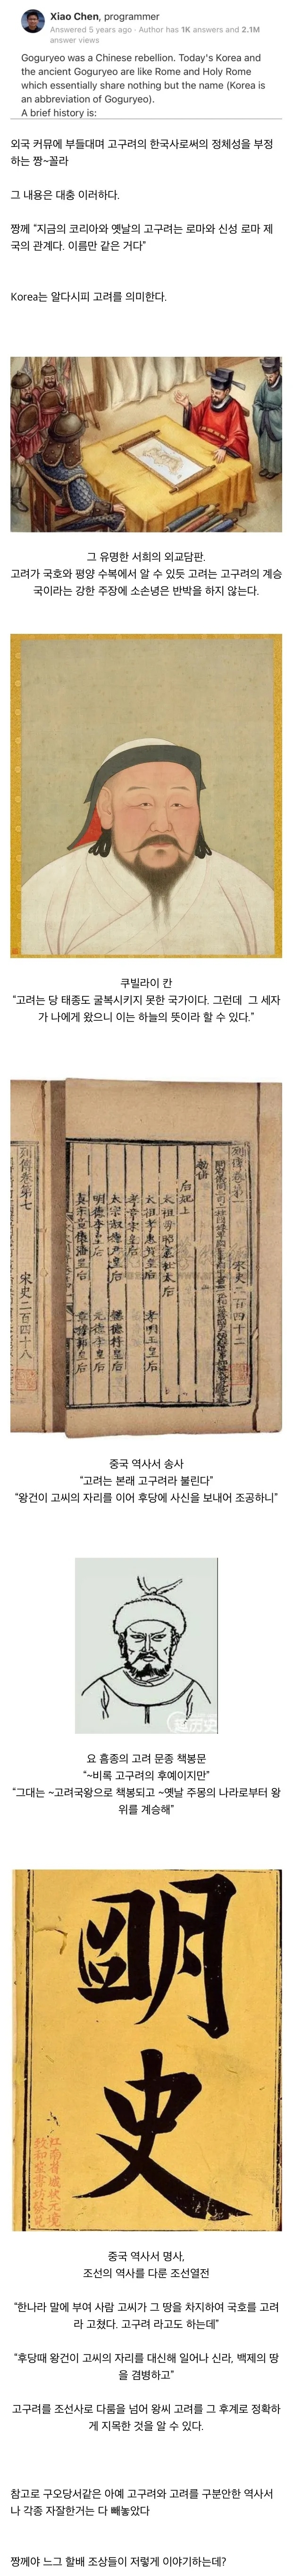 Xiao Chen, programmer
Answered 5 years ago · Author has 1K answers and 2.1M
answer views
Goguryeo was a Chinese rebellion. Today's Korea and
the ancient Goguryeo are like Rome and Holy Rome
which essentially share nothing but the name (Korea is
an abbreviation of Goguryeo).
A brief history is:
외국 커뮤에 부들대며 고구려의 한국사로써의 정체성을 부정
하는 짱~꼴라
그 내용은 대충 이러하다.
짱께 “지금의 코리아와 옛날의 고구려는 로마와 신성 로마 제
국의 관계다. 이름만 같은 거다”
Korea는 알다시피 고려를 의미한다.
그 유명한 서희의 외교담판.
고려가 국호와 평양 수복에서 알 수 있듯 고려는 고구려의 계승
국이라는 강한 주장에 소손녕은 반박을 하지 않는다.
쿠빌라이 칸
“고려는 당 태종도 굴복시키지 못한 국가이다. 그런데 그 세자
가 나에게 왔으니 이는 하늘의 뜻이라 할 수 있다.”
列傳卷第七
宋史二百四十八
列傳卷第一
宋史二百四十二
后妃上
중국 역사서 송사
“고려는 본래 고구려라 불린다”
“왕건이 고씨의 자리를 이어 후당에 사신을 보내어 조공하니”
요 흥종의 고려 문종 책봉문
“~비록 고구려의 후예이지만”
“그대는 ~고려국왕으로 책봉되고 ~옛날 주몽의 나라로부터 왕
위를 계승해”
明
史
중국 역사서 명사,
조선의 역사를 다룬 조선열전
“한나라 말에 부여 사람 고씨가 그 땅을 차지하여 국호를 고려
라 고쳤다. 고구려 라고도 하는데”
“후당때 왕건이 고씨의 자리를 대신해 일어나 신라, 백제의 땅
을 겸병하고”
고구려를 조선사로 다룸을 넘어 왕씨 고려를 그 후계로 정확하
게 지목한 것을 알 수 있다.
참고로 구오당서같은 아예 고구려와 고려를 구분안한 역사서
나 각종 자잘한거는 다 빼놓았다
짱께야 느그 할배 조상들이 저렇게 이야기하는데?